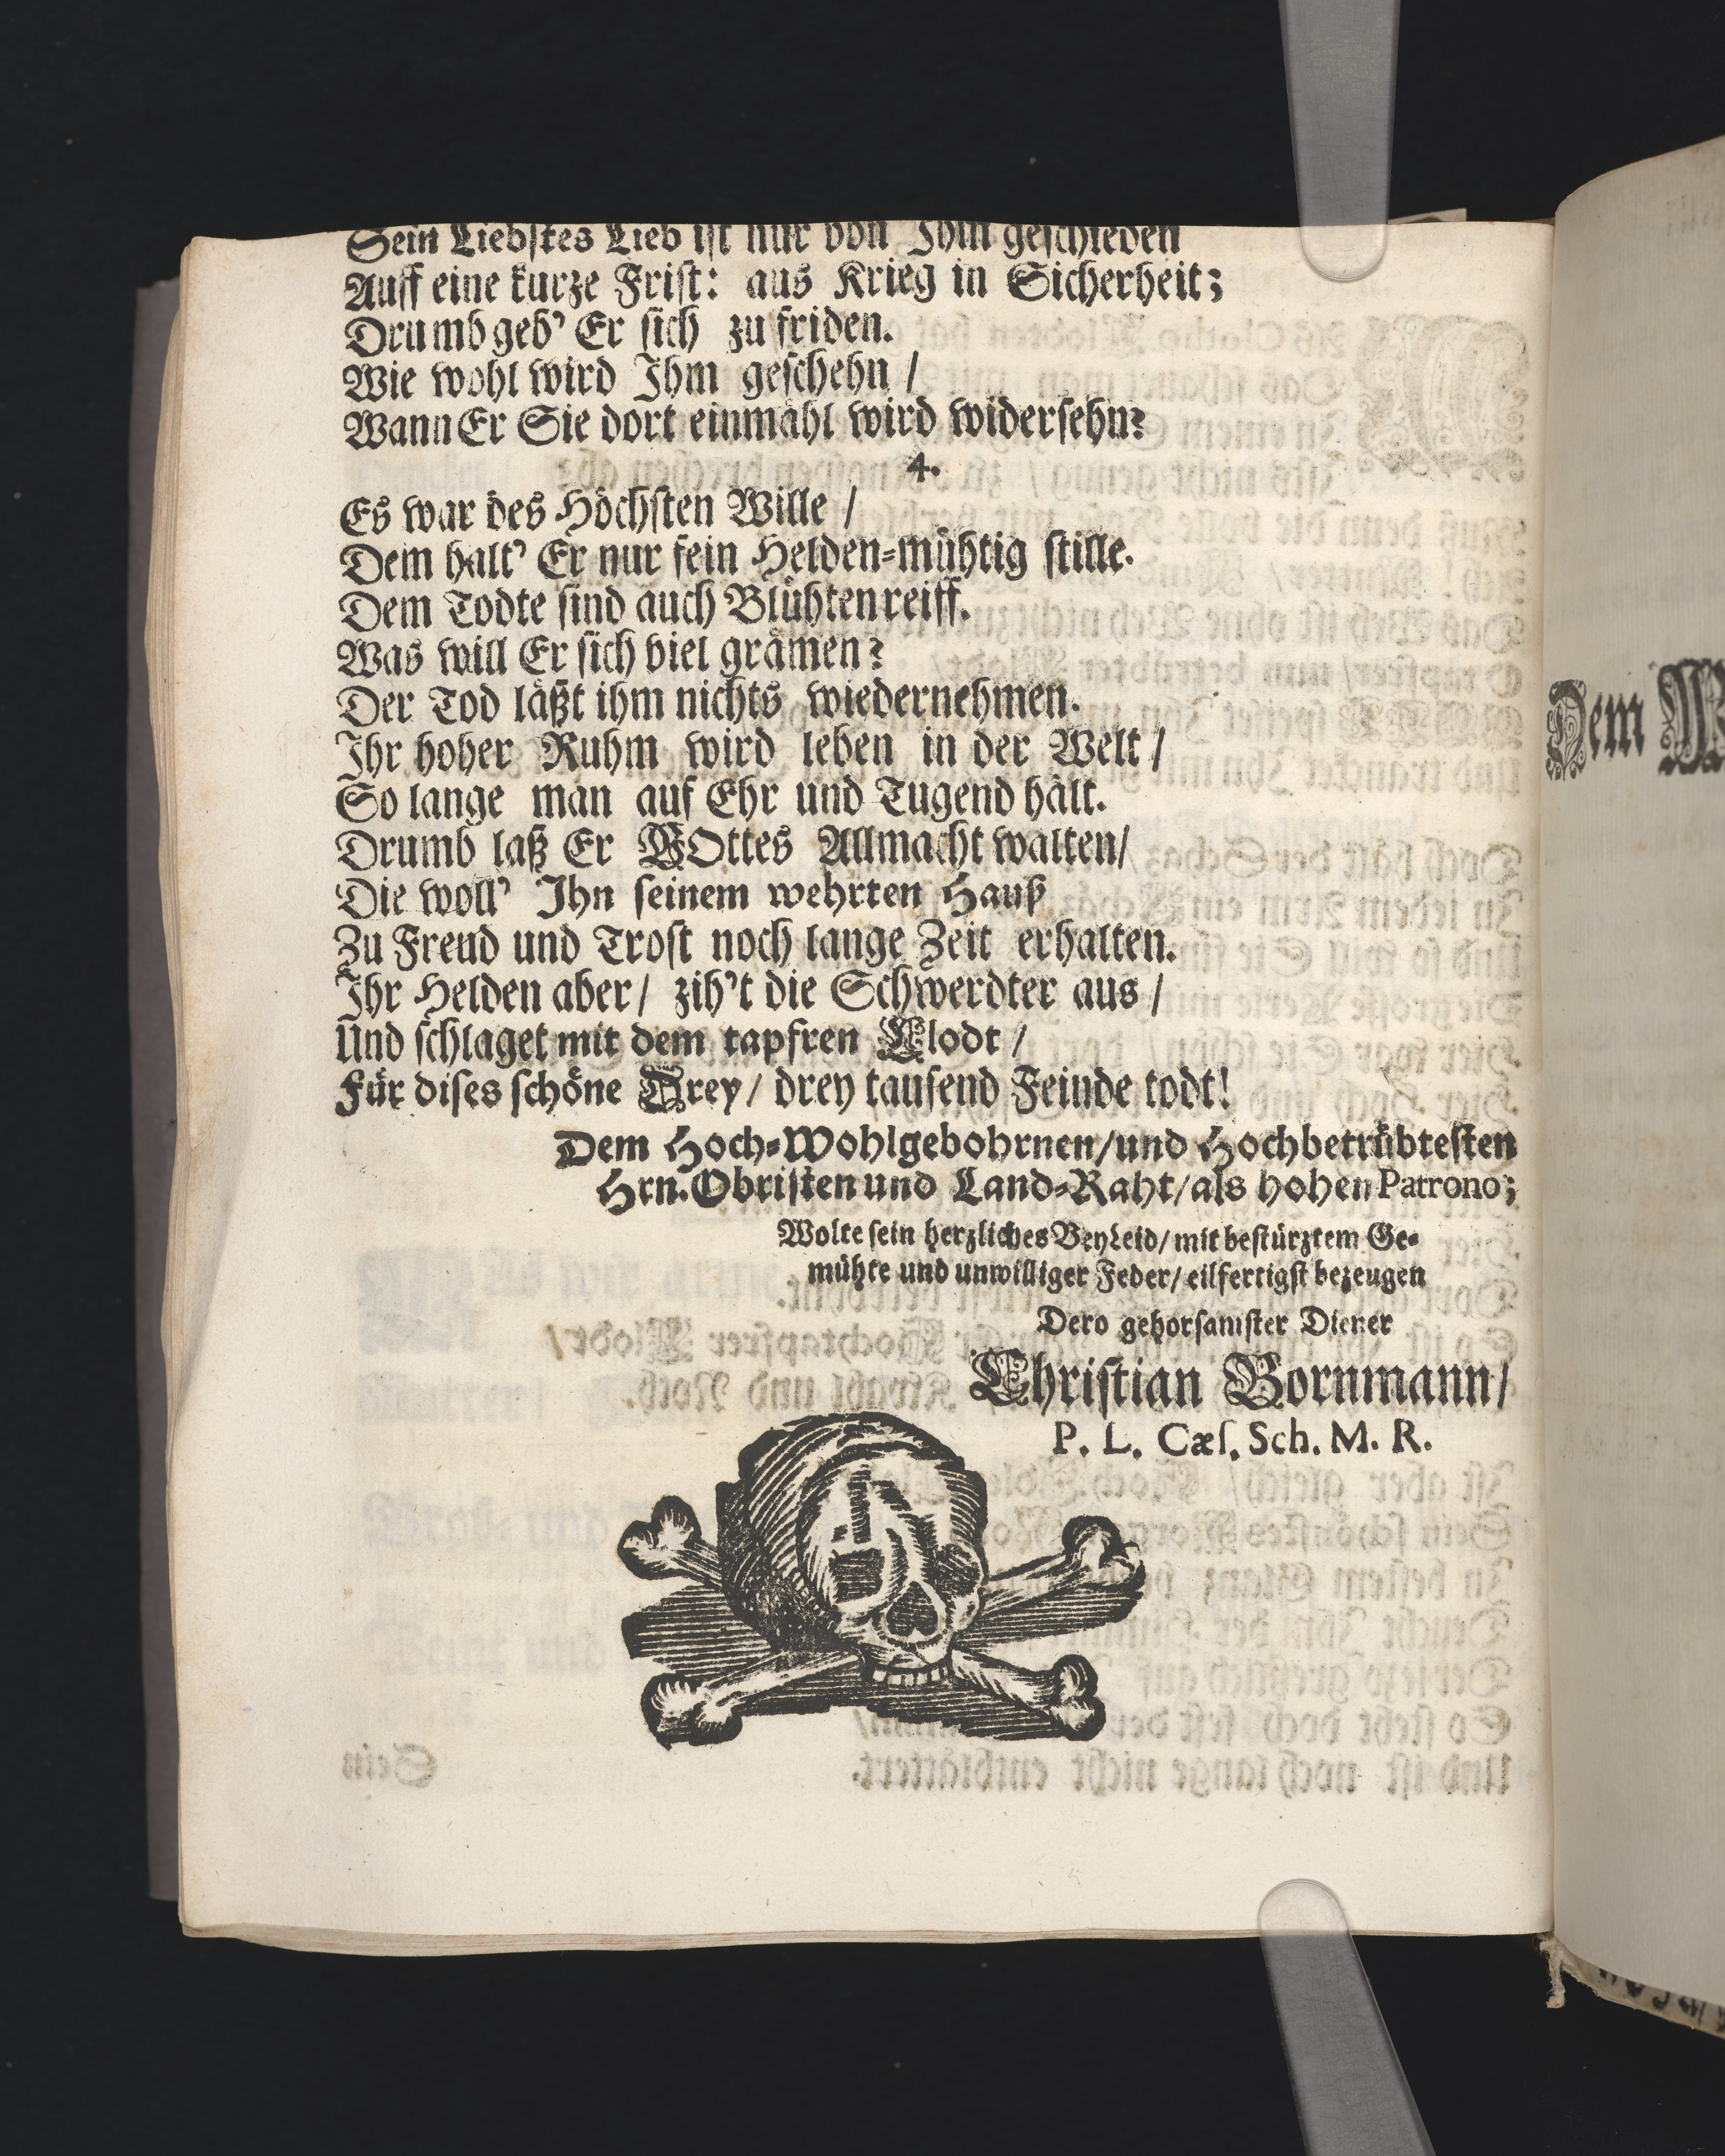 Sein Liebſtes Lieb iſt nur von Ihm geſchieden
Auff eine kurze Friſt: aus Krieg in Sicherheit;
Drumb geb' Er ſich zu friden.
Wie wohl wird Ihm geſchehn /
Wann Er Sie dort einmahl wird widerſehn?
4.
Es war des Höchſten Wille /
Dem halt' Er nur fein Helden-mühtig ſtille.
Dem Todte ſind auch Blühten reiff.
Was will Er ſich viel grämen?
Der Tod läßt ihm nichts wiedernehmen.
Ihr hoher Ruhm wird leben in der Welt /
So lange man auf Ehr und Tugend hält.
Drumb laß Er GOttes Allmacht walten/
Die woll' Ihn ſeinem wehrten Hauß
Zu Freud und Troſt noch lange Zeit erhalten.
Ihr Helden aber/ zih't die Schwerdter aus /
Und ſchlaget mit dem tapfren Clodt /
Für diſes ſchöne Drey/ drey tauſend Feinde todt!
Dem Hoch-Wohlgebohrnen/und Hochbetrübteſten
Hrn. Obriſten und Land-Raht/als hohen Patrono;
Wolte ſein herzliches BeyLeid/ mit beſtürztem Ge-
mühte und unwilliger Feder/ eilfertigſt bezeugen
Dero gehorſamſter Diener
Chriſtian Bornmann/
P. L. Cæſ. Sch. M. R.
Dem